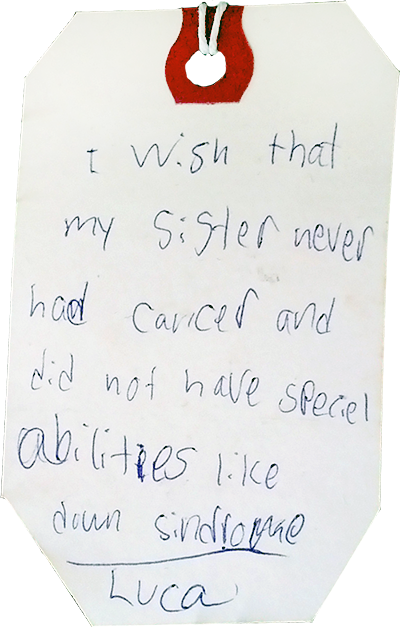 I wish that
my sister never
had cancer and
did not have speciel
abilities like
down sindrome
Luca